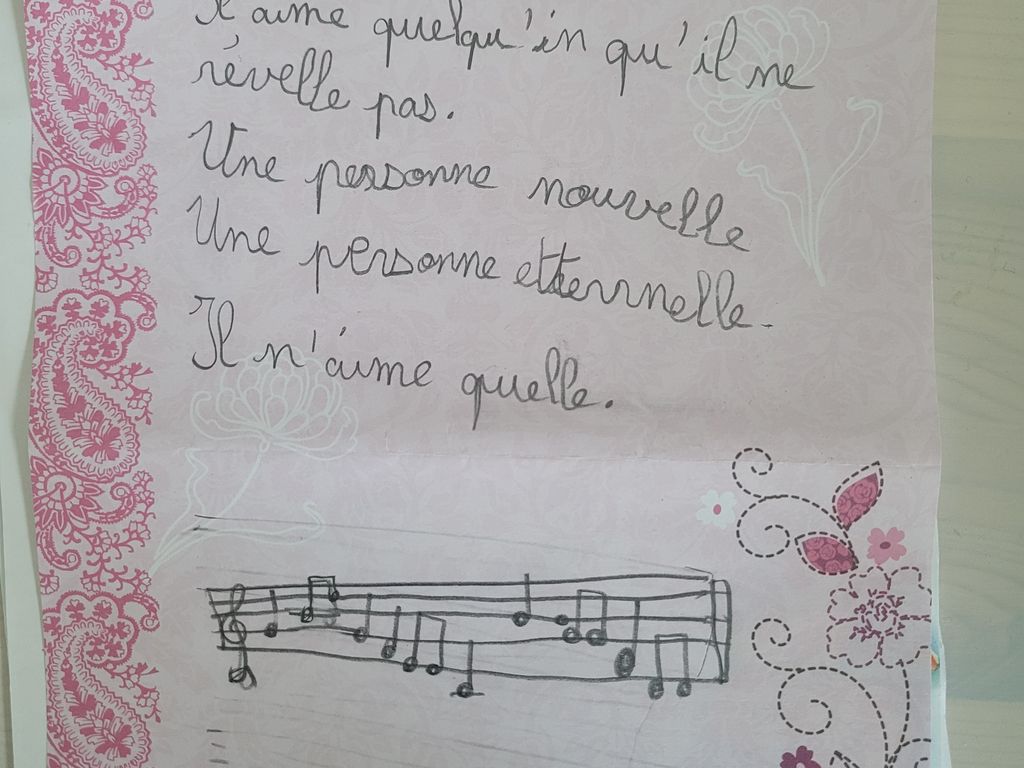 Il aime quelqu'in qu'il ne
révelle pas.
Une personne nouvelle
Une personne etternelle.
Il n'aime quelle.